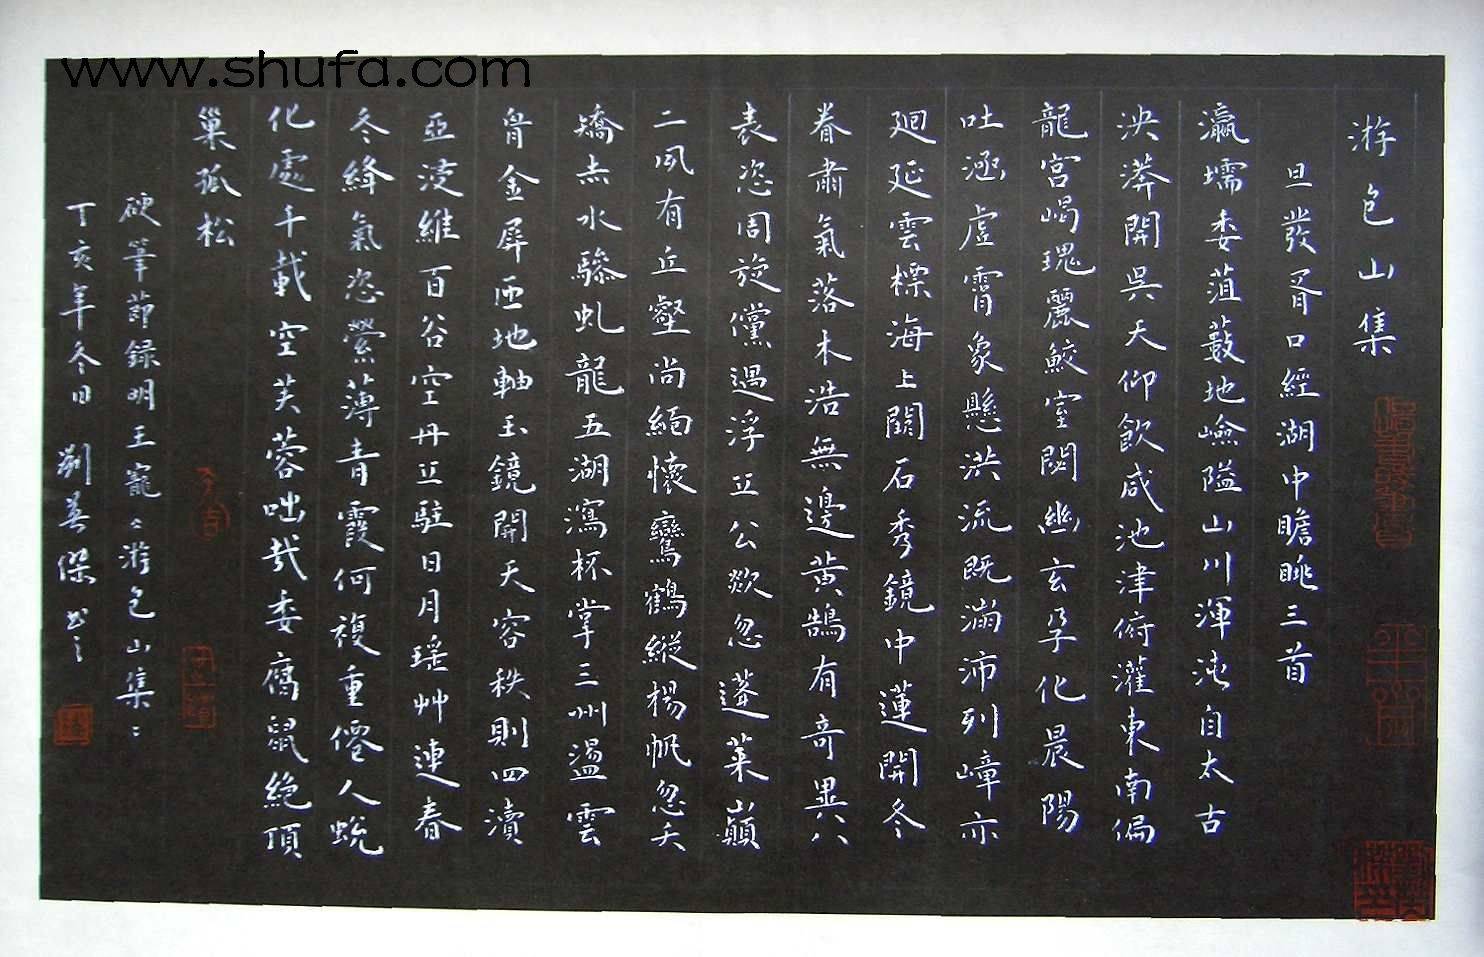 www.shufa.com
游包山集
旦發胥口經湖中瞻眺三首
瀛壖委菹藪地嶮隘山川渾沌自太古
泱漭開吳天仰飲咸池津俯灌東南偏
龍宮嵑瑰麗鮫室閟幽玄孕化晨陽
吐涵虛霄象懸洪流既滿沛列嶂亦
廻延雲標海上闕石秀鏡中蓮開冬
眷肅氣落木浩無邊黃鵠有奇異八
表恣周旋儻遇浮丘公欻忽蓬萊巔
二夙有丘壑尚緬懷鸞鶴縱楊帆忽夭
矯赤水驂虬龍五湖瀉杯掌三州盪雲
胷金犀匝地軸玉鏡開天容秩則四瀆
亞淩維百谷空丹丘駐日月瑤艸連春
冬絳氣恣縈薄青霞何複重僊人蛻
化處千載空芙蓉咄哉委腐鼠絶頂
巢孤松
硬筆節録明王寵〻游包山集〻
丁亥年冬日 劉善傑書之